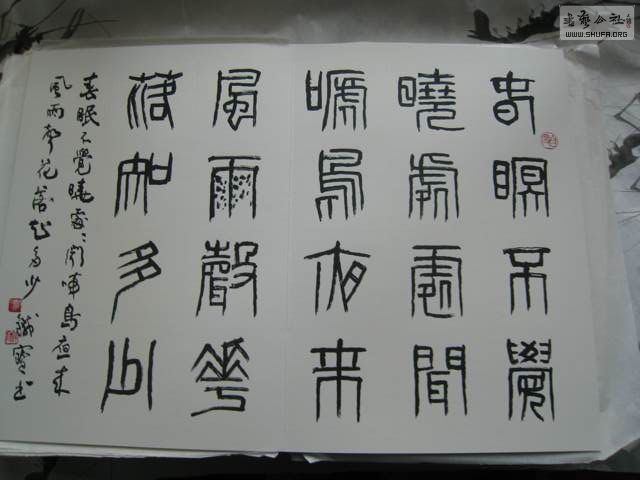 春瞑不覺
曉處處聞
嗁鳥夜来
風雨聲花
落知多少
春眠不覺曉處々聞啼鳥夜来
風雨聲花落知多少
書藝公社
WWW.SHUFA.ORG